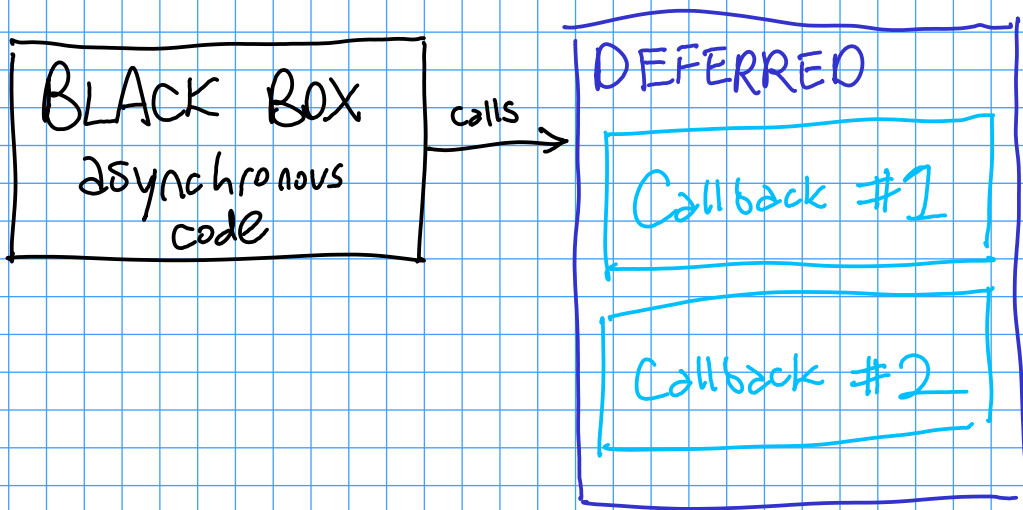 BLACK BOX
asynchronous
code
calls
DEFERRED
Callback #1
Callback #2